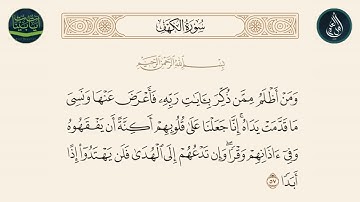 سُورَةُ الكَهْفِ
بِسْمِ اللَّهِ الرَّحْمَٰنِ الرَّحِيمِ
وَمَنْ أَظْلَمُ مِمَّن ذُكِّرَ بِـَٔايَٰتِ رَبِّهِۦ فَأَعْرَضَ عَنْهَا وَنَسِيَ
مَا قَدَّمَتْ يَدَاهُ ۚ إِنَّا جَعَلْنَا عَلَىٰ قُلُوبِهِمْ أَكِنَّةً أَن يَفْقَهُوهُ
وَفِىٓ ءَاذَانِهِمْ وَقْرًا ۖ وَإِن تَدْعُهُمْ إِلَى ٱلْهُدَىٰ فَلَن يَهْتَدُوٓا۟ إِذًا
أَبَدًا ٥٧